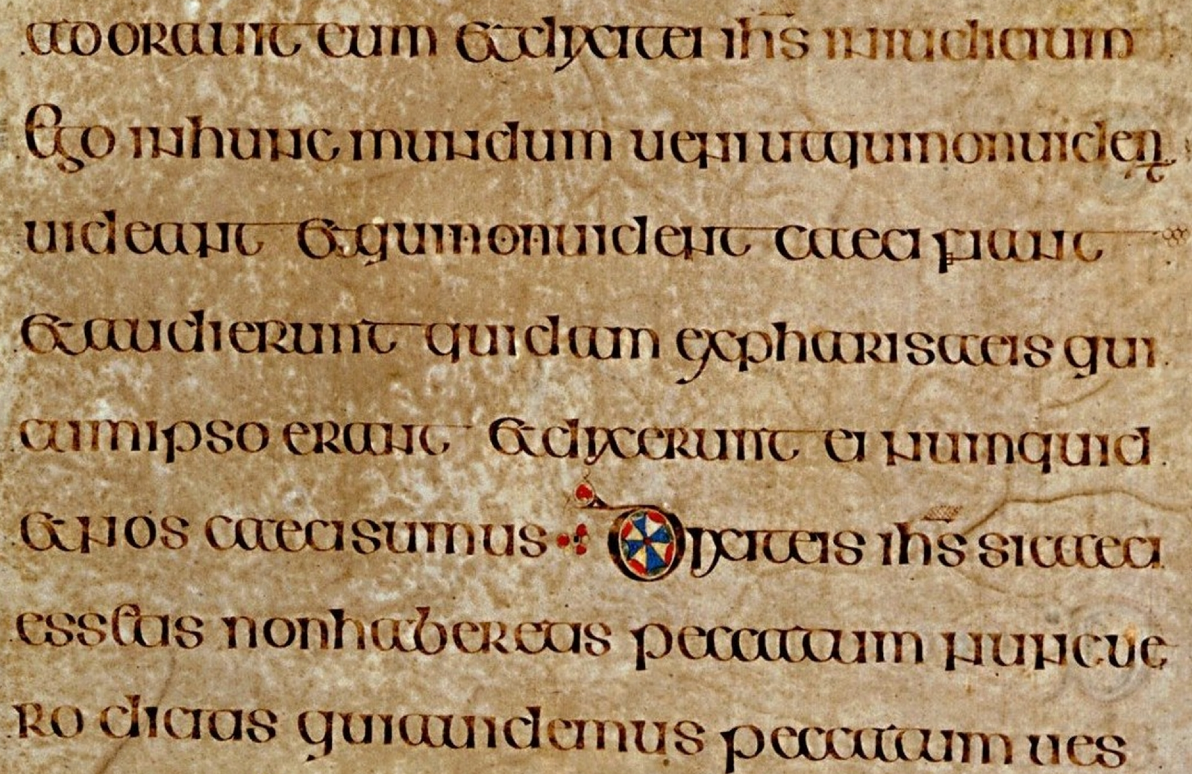 adorauit eum Et dixit ei ihs in iudicium
Ego inhunc mundum ueni utquinonuident
uideant Et quinonuident caeci fiant
Et audierunt quidam expharisaeis qui
cumipso erant Et dixerunt ei numquid
Et nos caecisumus Dixit eis ihs sicaeci
essetis nonhaberetis peccatum nuncue
ro dicitis quiauidemus peccatum ues